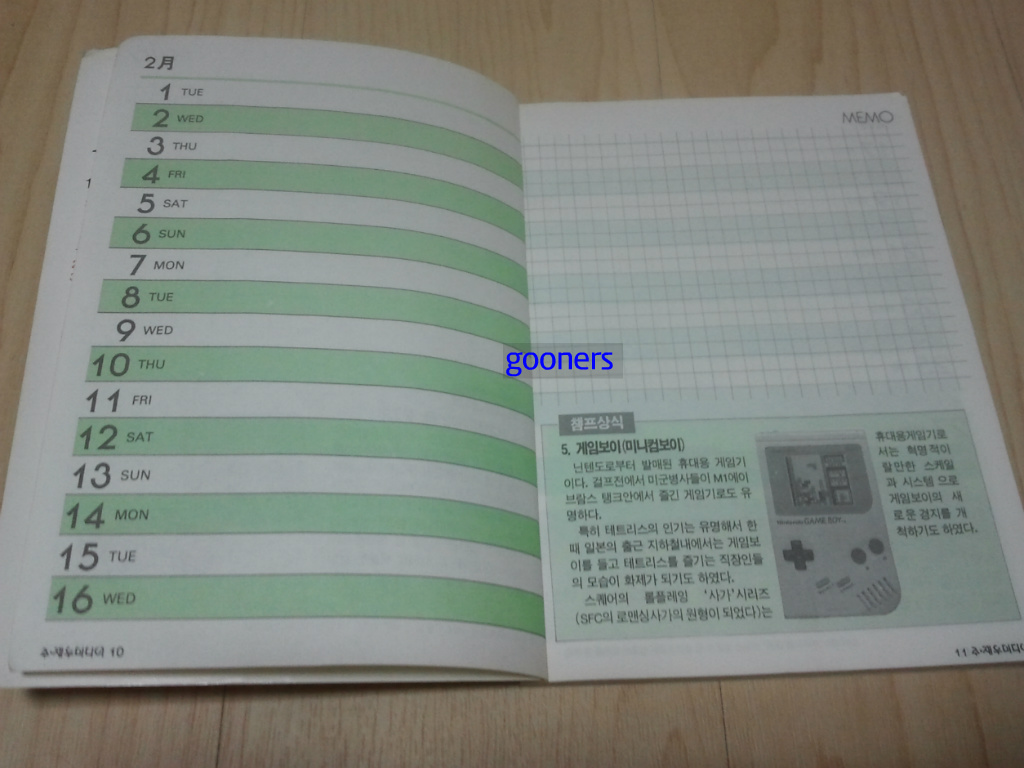 2月
1 TUE
2 WED
3 THU
4 FRI
5 SAT
6 SUN
7 MON
8 TUE
9 WED
10 THU
11 FRI
12 SAT
13 SUN
14 MON
15 TUE
16 WED
10
MEMO
gooners
챔프상식
5. 게임보이(미니컴보이)
닌텐도로부터 발매된 휴대용 게임기
이다. 걸프전에서 미군병사들이 M1에이
브람스 탱크안에서 즐긴 게임기로도 유
명하다.
특히 테트리스의 인기는 유명해서 한
때 일본의 출근 지하철내에서는 게임보
이를 들고 테트리스를 즐기는 직장인들
의 모습이 화제가 되기도 하였다.
스퀘어의 롤플레잉 '사가'시리즈
(SFC의 로맨싱사가의 원형이 되었다)는
Nintendo GAME BOY
휴대용게임기로
서는 혁명적이
랄만한 스케일
과 시스템으로
게임보이의 새
로운 경지를 개
척하기도 하였다.
11